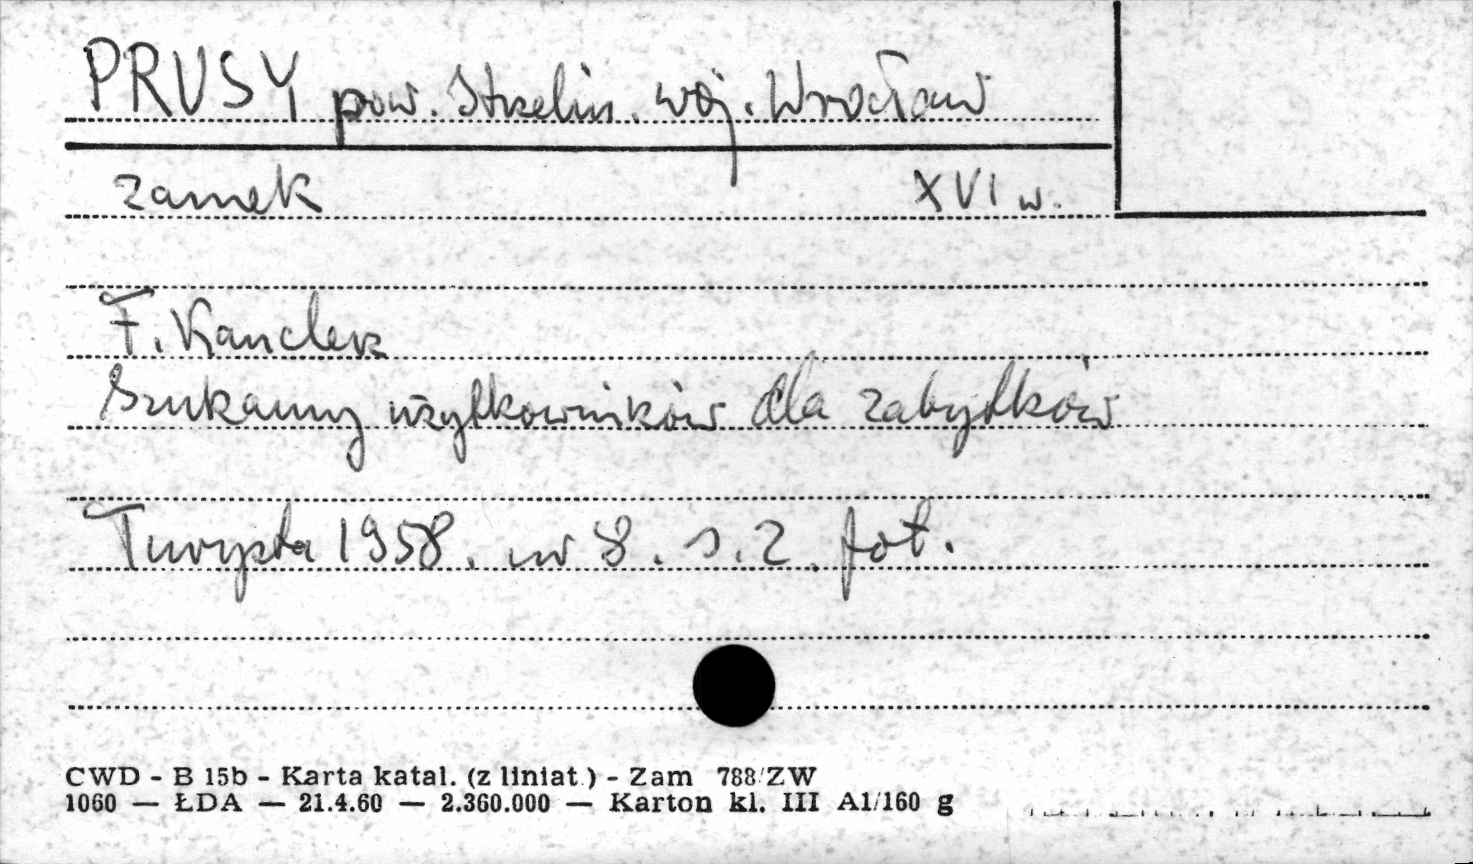 PRUSY pow. Strzelin. woj. Wrocław
zamek XVI w.
F. Kanclerz
Szukamy użytkowników dla zabytków
Turysta 1958. nr 8. s. 2. fot.
CWD - B 15b - Karta katal. (z liniat.) - Zam 788/ZW
1060 — ŁDA — 21.4.60 — 2.360.000 — Karton kl. III A1/160 g